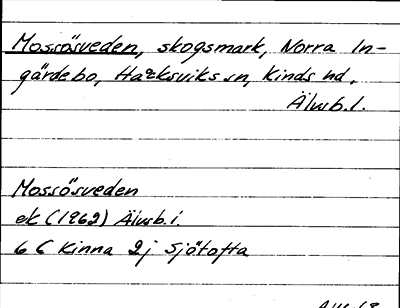 Mossösveden, skogsmark, Norra In-
gärdebo, Håcksviks sn, Kinds hd,
Älvsb.l.
Mossösveden
ek (1962) Älvsb.l.
6 C Kinna 2j Sjötofta